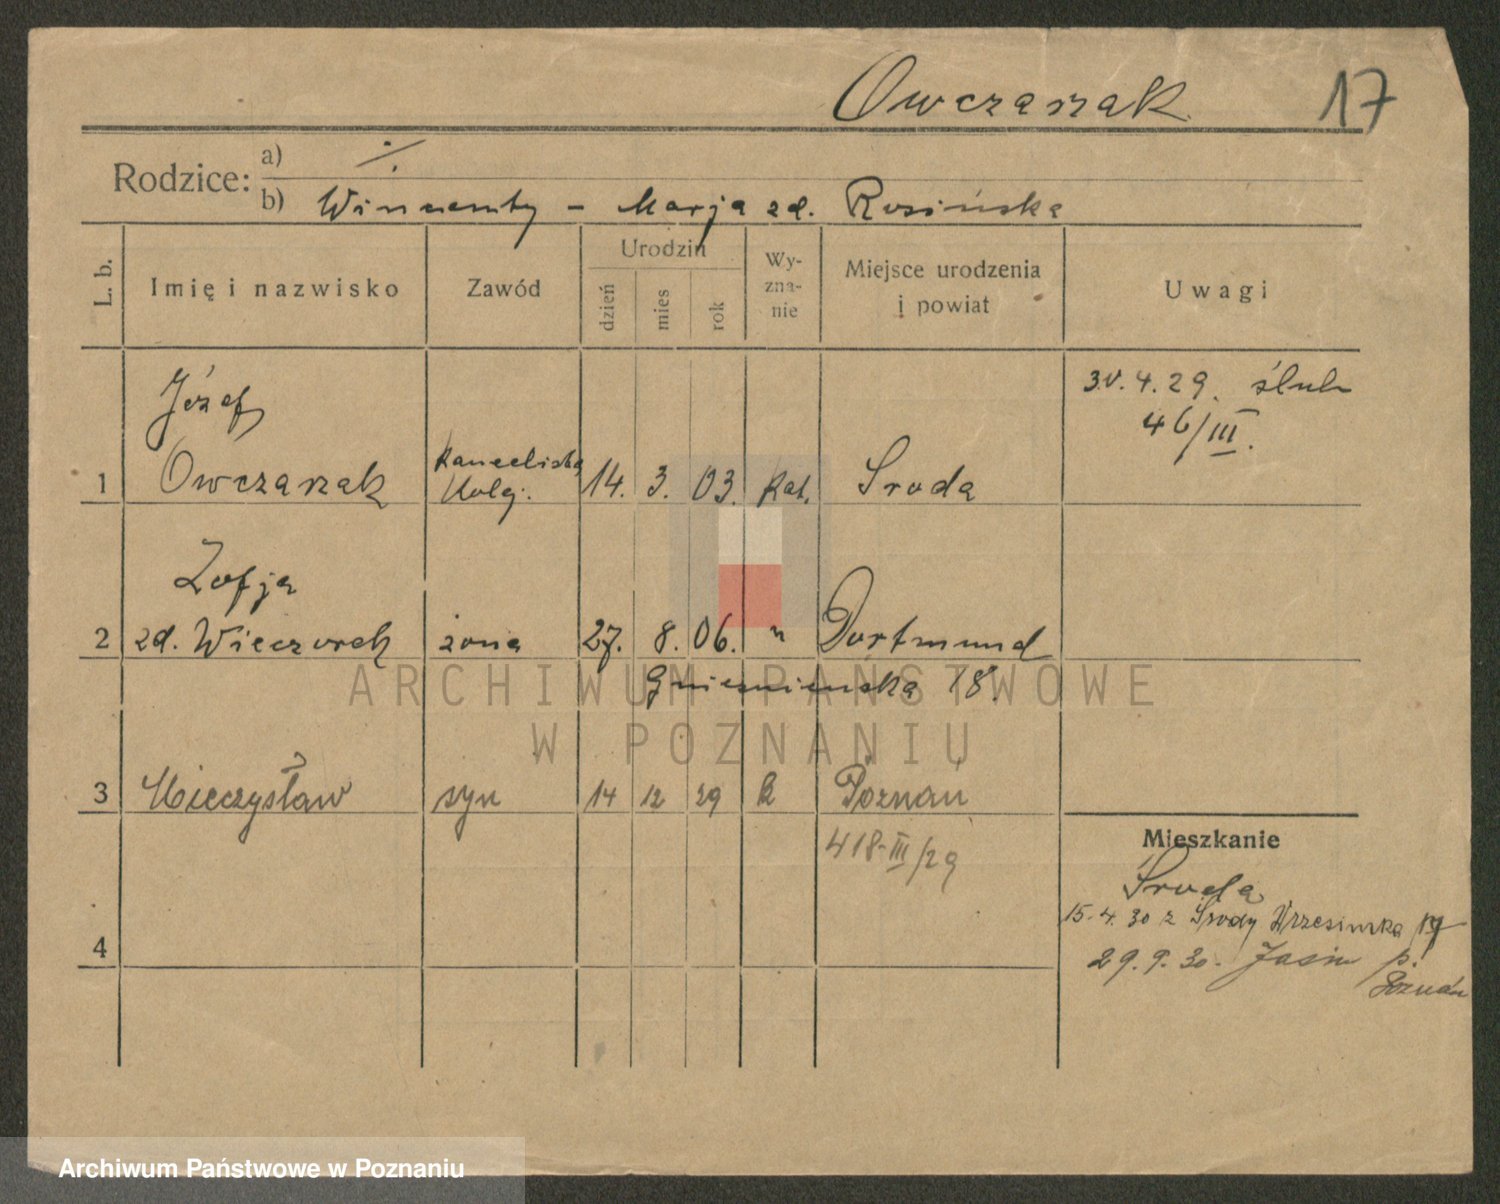 Owczarzak 17
Rodzice: a) ./.
b) Wincenty – Marja zd. Rosińska
L. b. Imię i nazwisko Zawód Urodzin dzień mies rok Wy-zna-nie Miejsce urodzenia i powiat Uwagi
Józef 30.4.29. ślub
46/III.
1 Owczarzak kancelista kolej. 14. 3. 03. kat. Środa
Zofja
2 zd. Wieczorek żona 27. 8. 06. " Dortmund
Gnieźnieńska 18.
ARCHIWUM PAŃSTWOWE
W POZNANIU
3 Mieczysław syn 14 12 29 k Poznań
418-III/29
Mieszkanie
Środa
15.4.30 z Środy Wrzesińska
29.9.30. Jasin p.
Poznań
4
Archiwum Państwowe w Poznaniu